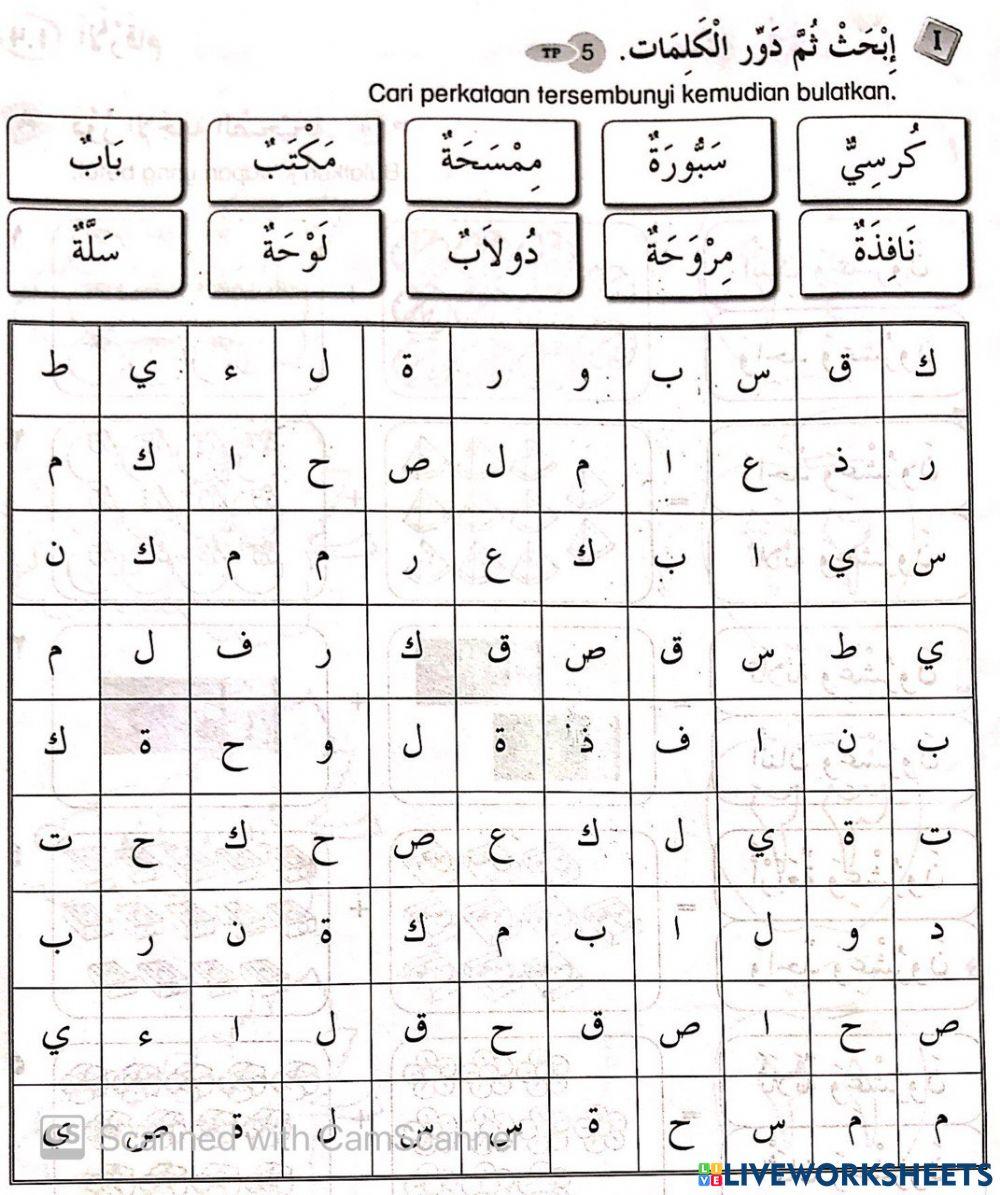 I إِبْحَثْ ثُمَّ دَوِّر الْكَلِمَات. TP 5
Cari perkataan tersembunyi kemudian bulatkan.
كُرسِيٌّ سَبُّورَةٌ مِمْسَحَةٌ مَكْتَبٌ بَابٌ
نَافِذَةٌ مِرْوَحَةٌ دُولَابٌ لَوْحَةٌ سَلَّةٌ
ك ق س ب و ر ة ل ء ي ط
ر ذ ع ا م ل ص ح ا ك م
س ي ا ب ك ع ر م م ك ن
ي ط س ق ص ق ك ر ف ل م
ب ن ا ف ذ ة ل و ح ة ك
ت ة ي ل ك ع ص ح ك ح ت
د و ل ا ب م ك ة ن ر ب
ص ح ا ص ق ح ق ل ا ء ي
م م س ح ة س س ل ة ص ي
CS Scanned with CamScanner
LIVEWORKSHEETS